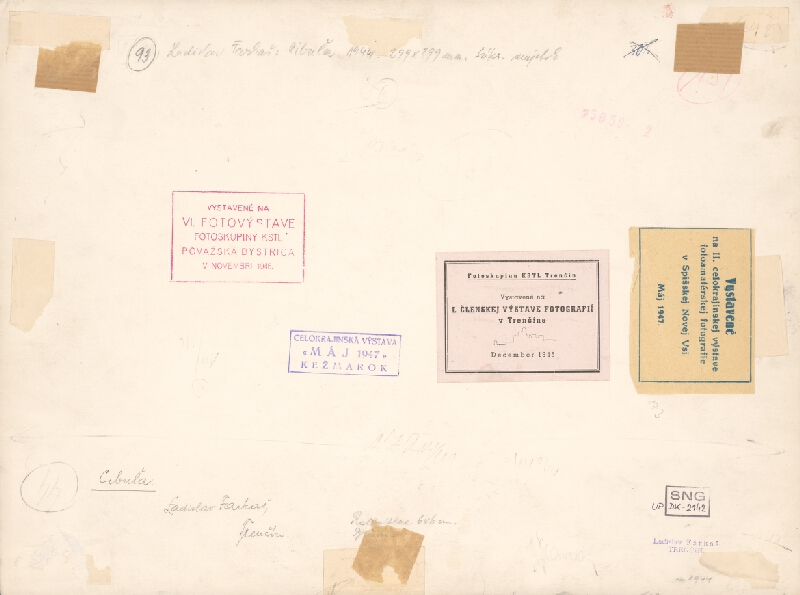 93 Ladislav Farkaš: Cibuľa 1944 299x399 mm. súkr. majetok
VYSTAVENÉ NA
VI. FOTOVÝSTAVE
FOTOSKUPINY KSTL
POVAŽSKÁ BYSTRICA
V NOVEMBRI 1946.
CELOKRAJINSKÁ VÝSTAVA
« MÁJ 1947 »
KEŽMAROK
Fotoskupina KSTL Trenčín
Vystavené na
I. ČLENSKEJ VÝSTAVE FOTOGRAFIÍ
v Trenčíne
December
Vystavené
na II. celokrajinskej výstave
fotoamatérskej fotografie
v Spišskej Novej Vsi
Máj 1947.
Cibuľa
Ladislav Farkaš,
Trenčín
SNG
UP-DK-2142
Ladislav Farkaš
TRENČÍN
1944